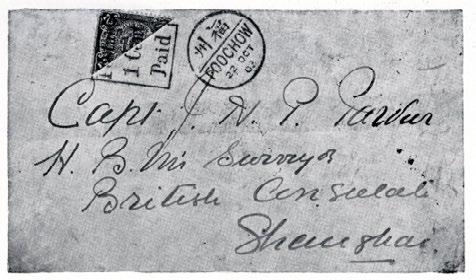 1 Cent
Paid
福州
FOOCHOW
22 OCT
03
Capt J. H. P. Parker
H. B. M's Surveyor
British Consulate
Shanghai.